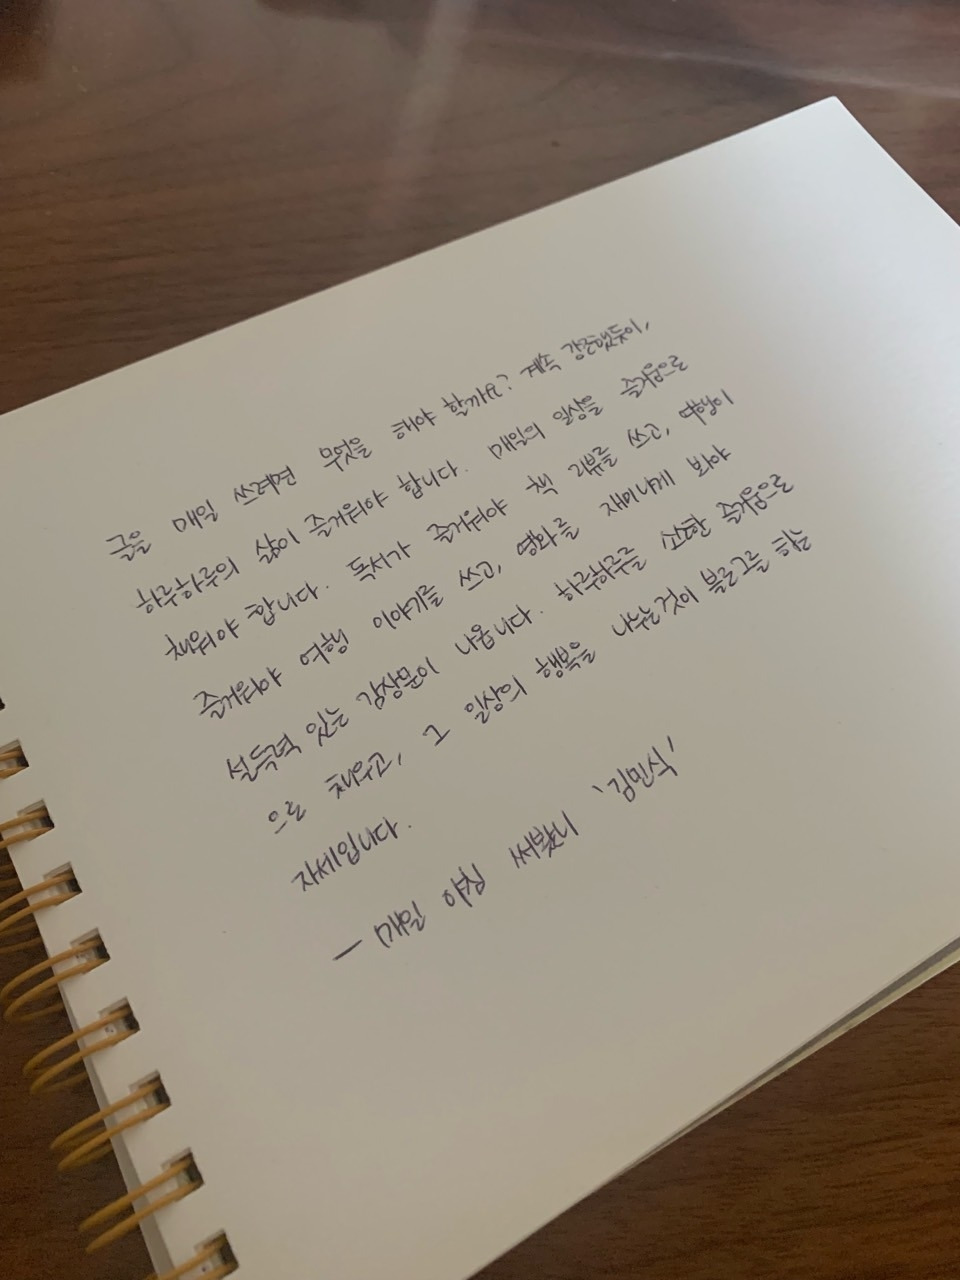 글을 매일 쓰려면 무엇을 해야 할까요? 계속 강조했듯이,
하루하루의 삶이 즐거워야 합니다. 매일의 일상을 즐거움으로
채워야 합니다. 독서가 즐거워야 책 리뷰를 쓰고, 여행이
즐거워야 여행 이야기를 쓰고, 영화를 재미나게 봐야
설득력 있는 감상문이 나옵니다. 하루하루를 소소한 즐거움으로
으로 채우고, 그 일상의 행복을 나누는 것이 블로그를 하는
자세입니다.
— 매일 아침 써봤니 '김민식'